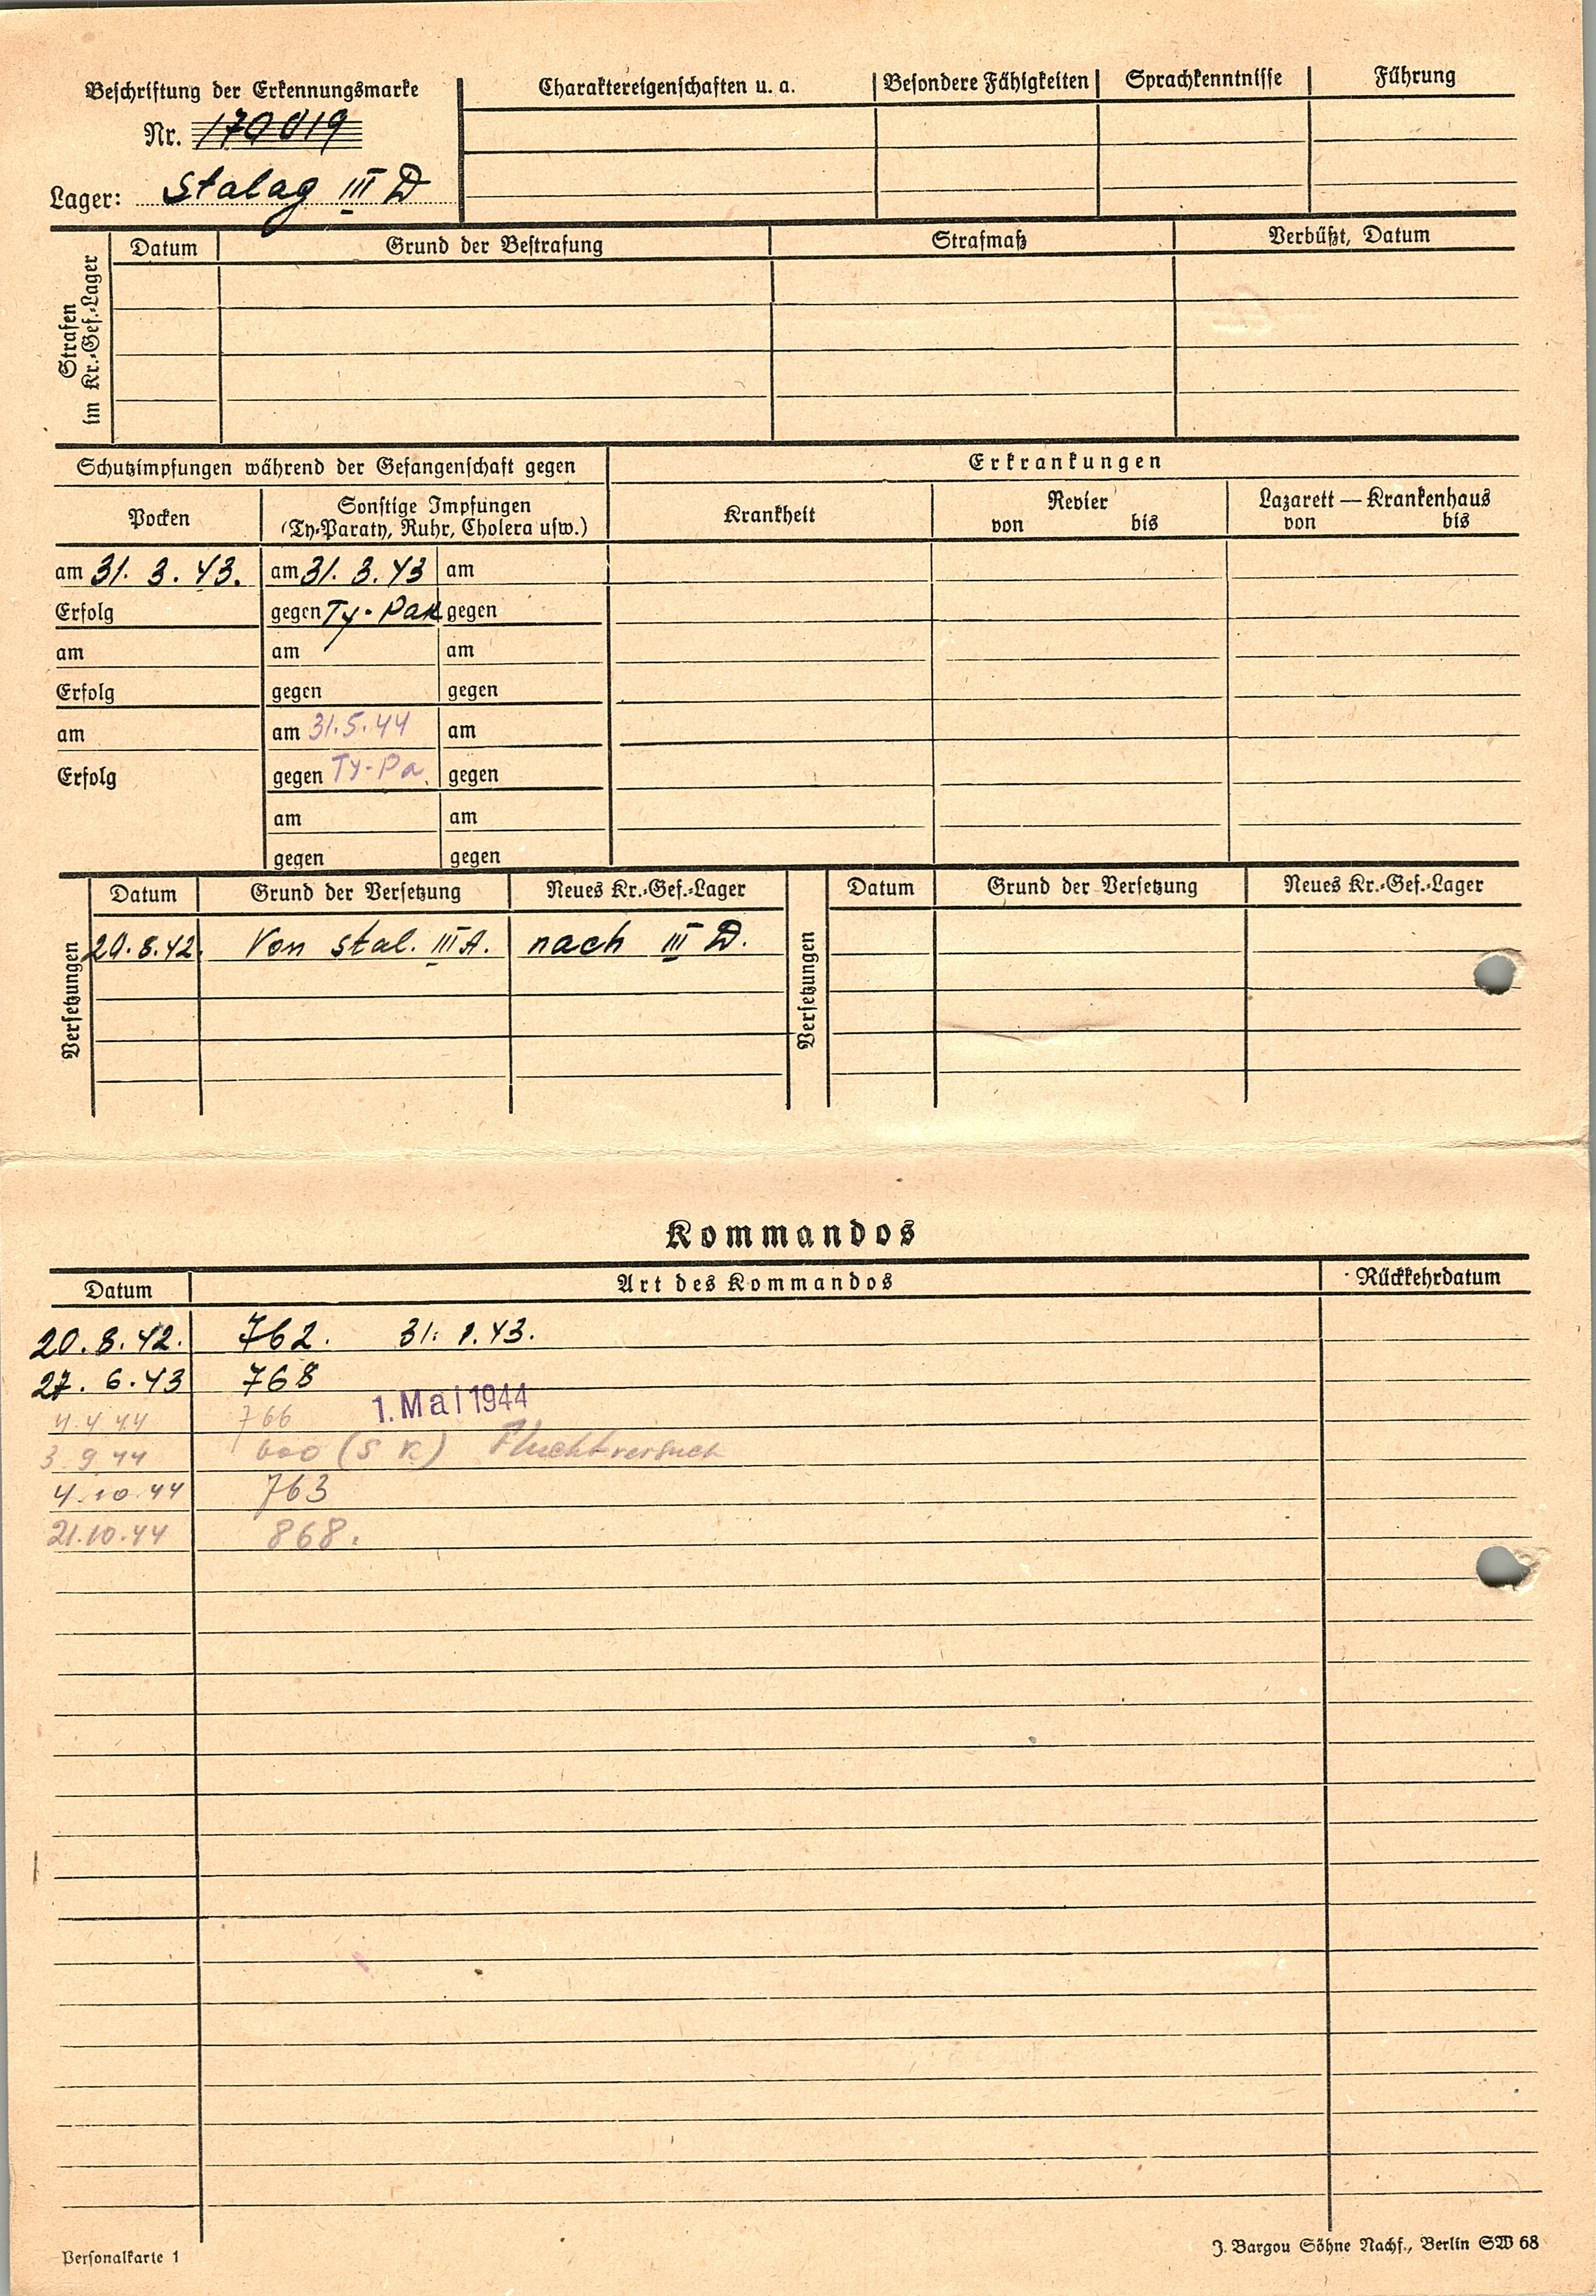 Beschriftung der Erkennungsmarke
Nr. 170019
Lager: Stalag III D
Charaktereigenschaften u. a.
Besondere Fähigkeiten
Sprachkenntnisse
Führung
Strafen
im Kr.-Gef.-Lager
Datum
Grund der Bestrafung
Strafmaß
Verbüßt, Datum
Schutzimpfungen während der Gefangenschaft gegen
Erkrankungen
Pocken
Sonstige Impfungen
(Ty-Paraty, Ruhr, Cholera usw.)
Krankheit
Revier
von bis
Lazarett — Krankenhaus
von bis
am 31. 3. 43. am 31. 3. 43 am
Erfolg gegen Ty-Pa gegen
am am am
Erfolg gegen gegen
am am 31.5.44 am
Erfolg gegen Ty-Pa. gegen
am am
gegen gegen
Versetzungen
Datum Grund der Versetzung Neues Kr.-Gef.-Lager
20.8.42. Von Stal. III A. nach III D.
Versetzungen
Datum Grund der Versetzung Neues Kr.-Gef.-Lager
Kommandos
Datum Art des Kommandos Rückkehrdatum
20.8.42. 762. 31. 1. 43.
27. 6. 43 768
4.4.44 766 1. Mai 1944
3.9.44 600 (S K) Fluchtversuch
4.10.44 763
21.10.44 868.
Personalkarte 1
J. Bargou Söhne Nachf., Berlin SW 68